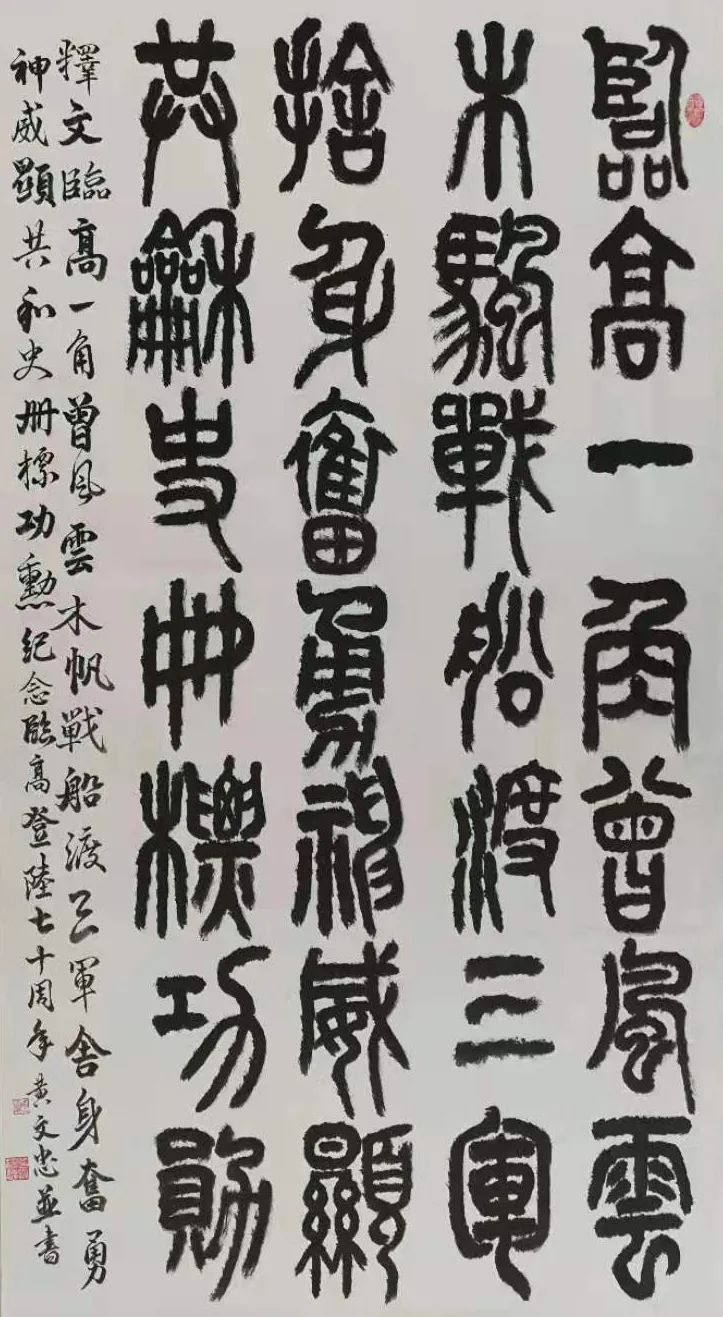 臨高一角曾風雲
木颿戰船渡三軍
捨身奮勇神威顯
共龢史冊標功勛
釋文臨高一角曾风雲木帆戰船渡三軍舍身奮勇
神威顕共和史册標功勳紀念臨高登陸七十周年黄文忠並書